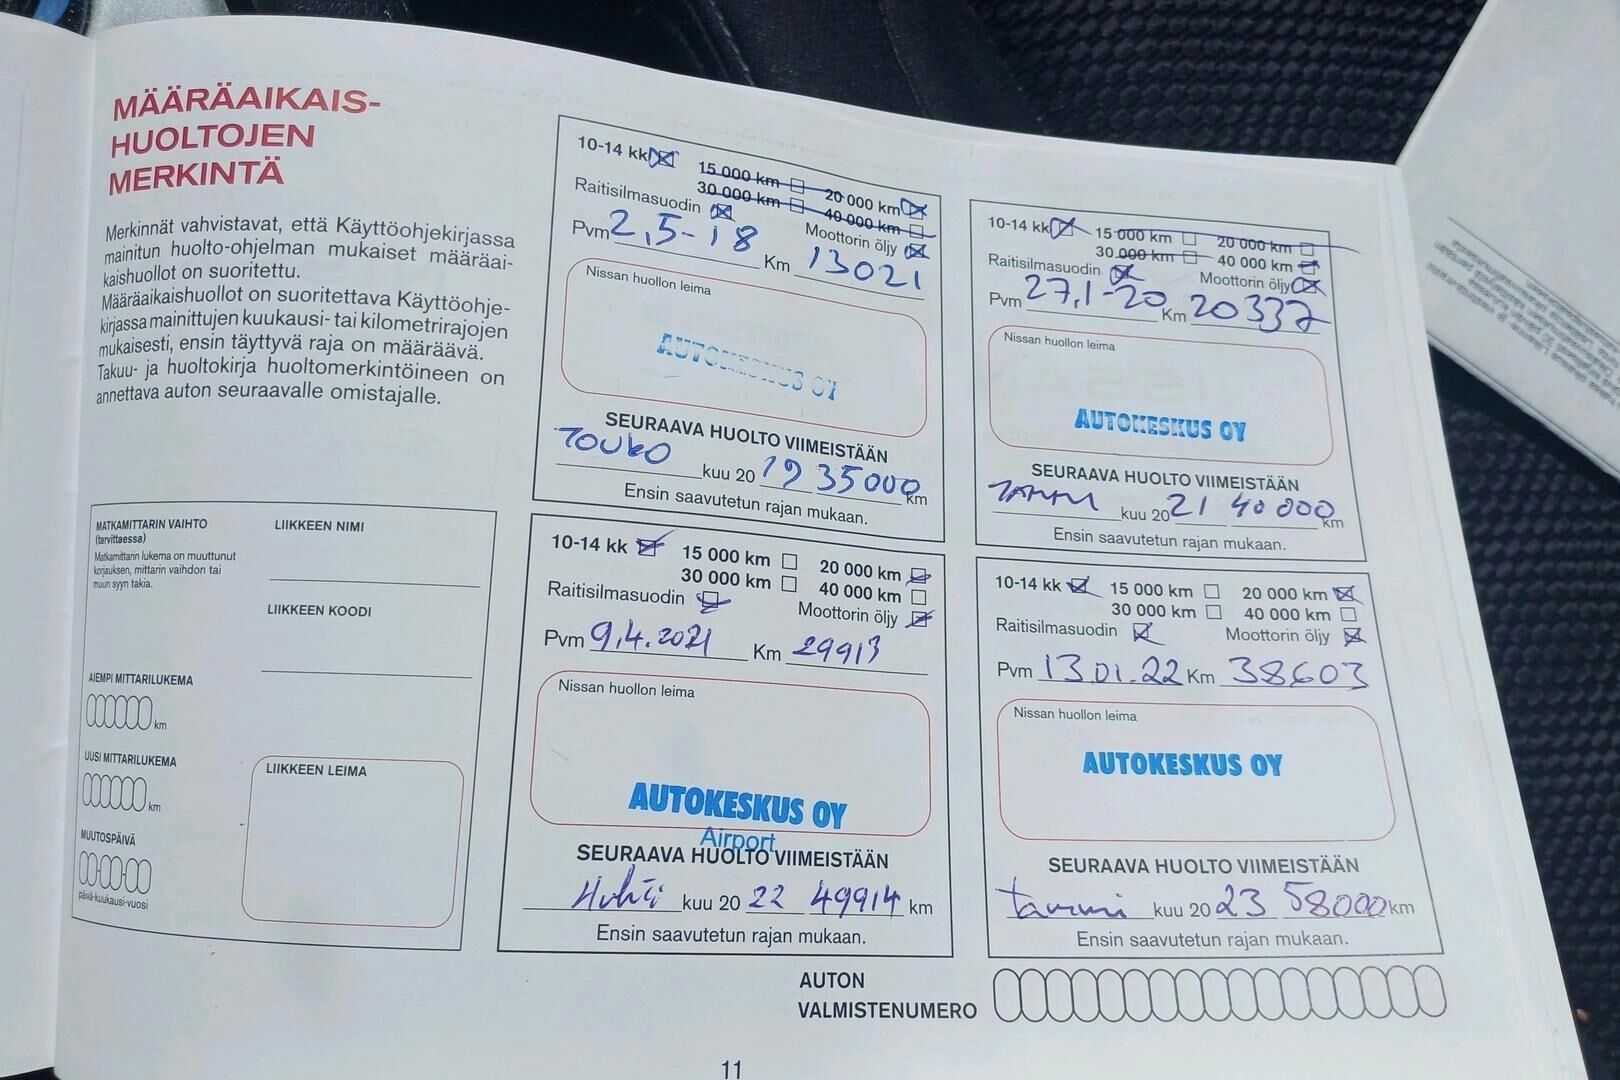 MÄÄRÄAIKAIS-
HUOLTOJEN
MERKINTÄ
Merkinnät vahvistavat, että Käyttöohjekirjassa
mainitun huolto-ohjelman mukaiset määräai-
kaishuollot on suoritettu.
Määräaikaishuollot on suoritettava Käyttöohje-
kirjassa mainittujen kuukausi- tai kilometrirajojen
mukaisesti, ensin täyttyvä raja on määräävä.
Takuu- ja huoltokirja huoltomerkintöineen on
annettava auton seuraavalle omistajalle.
MATKAMITTARIN VAIHTO
(tarvittaessa)
Matkamittarin lukema on muuttunut
korjauksen, mittarin vaihdon tai
muun syyn takia.
LIIKKEEN NIMI
LIIKKEEN KOODI
AIEMPI MITTARILUKEMA
km
UUSI MITTARILUKEMA
km
MUUTOSPÄIVÄ
päivä-kuukausi-vuosi
LIIKKEEN LEIMA
10-14 kk 15 000 km 20 000 km
30 000 km 40 000 km
Raitisilmasuodin Moottorin öljy
Pvm 2,5-18 Km 13021
Nissan huollon leima
AUTOKESKUS OY
SEURAAVA HUOLTO VIIMEISTÄÄN
TOUKO kuu 2019 35000 km
Ensin saavutetun rajan mukaan.
10-14 kk 15 000 km 20 000 km
30 000 km 40 000 km
Raitisilmasuodin Moottorin öljy
Pvm 27,1-20 Km 20337
Nissan huollon leima
AUTOKESKUS OY
SEURAAVA HUOLTO VIIMEISTÄÄN
TAMMI kuu 2021 40000 km
Ensin saavutetun rajan mukaan.
10-14 kk 15 000 km 20 000 km
30 000 km 40 000 km
Raitisilmasuodin Moottorin öljy
Pvm 9.4.2021 Km 29913
Nissan huollon leima
AUTOKESKUS OY
Airport
SEURAAVA HUOLTO VIIMEISTÄÄN
Huhti kuu 2022 49914 km
Ensin saavutetun rajan mukaan.
10-14 kk 15 000 km 20 000 km
30 000 km 40 000 km
Raitisilmasuodin Moottorin öljy
Pvm 13.01.22 Km 38603
Nissan huollon leima
AUTOKESKUS OY
SEURAAVA HUOLTO VIIMEISTÄÄN
tammi kuu 2023 58000 km
Ensin saavutetun rajan mukaan.
AUTON
VALMISTENUMERO
11